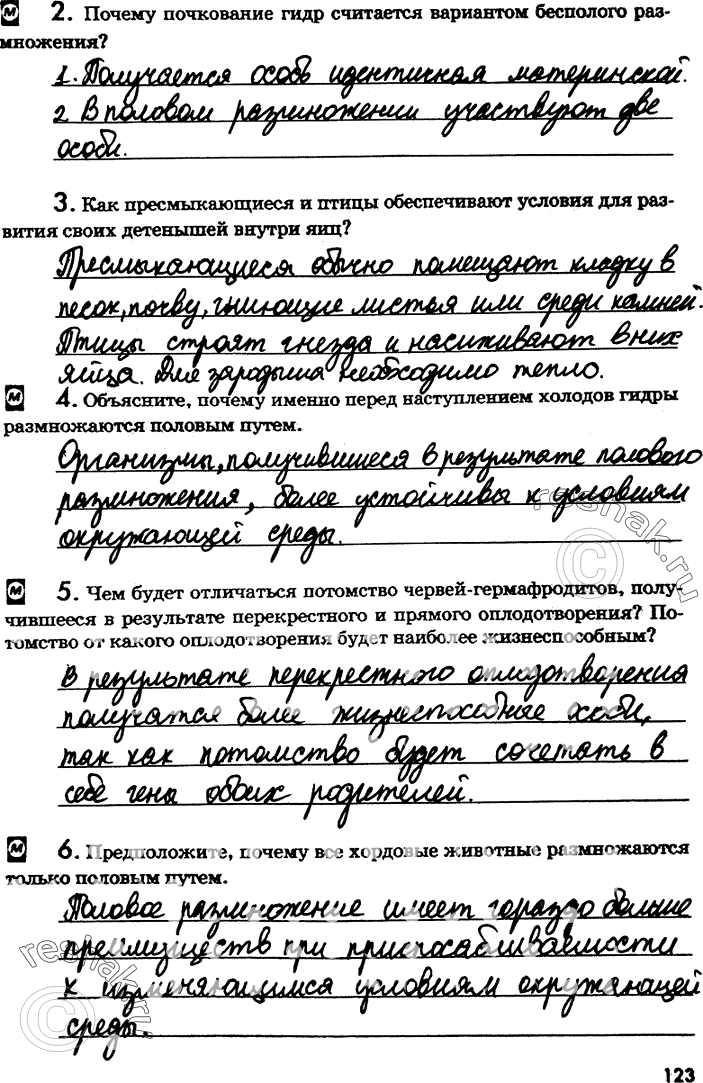 М 2. Почему почкование гидр считается вариантом бесполого раз-
множения?
1. Получается особь идентичная материнской.
2 В половом размножении участвуют две
особи.
3. Как пресмыкающиеся и птицы обеспечивают условия для раз-
вития своих детенышей внутри яиц?
Пресмыкающиеся обычно помещают кладку в
песок, почву, гниющие листья или среди камней.
Птицы строят гнезда и насиживают в них
яйца. Для зародыша необходимо тепло.
М 4. Объясните, почему именно перед наступлением холодов гидры
размножаются половым путем.
Организмы, получившиеся в результате полового
размножения, более устойчивы к условиям
окружающей среды.
М 5. Чем будет отличаться потомство червей-гермафродитов, полу-
чившееся в результате перекрестного и прямого оплодотворения? По-
томство от какого оплодотворения будет наиболее жизнеспособным?
В результате перекрестного оплодотворения
получатся более жизнеспособные особи,
так как потомство будет сочетать в
себе гены обоих родителей.
М 6. Предположите, почему все хордовые животные размножаются
только половым путем.
Половое размножение имеет гораздо больше
преимуществ при приспосабливаемости
к изменяющимся условиям окружающей
среды.
123
reshak.ru
©
reshak.ru
©